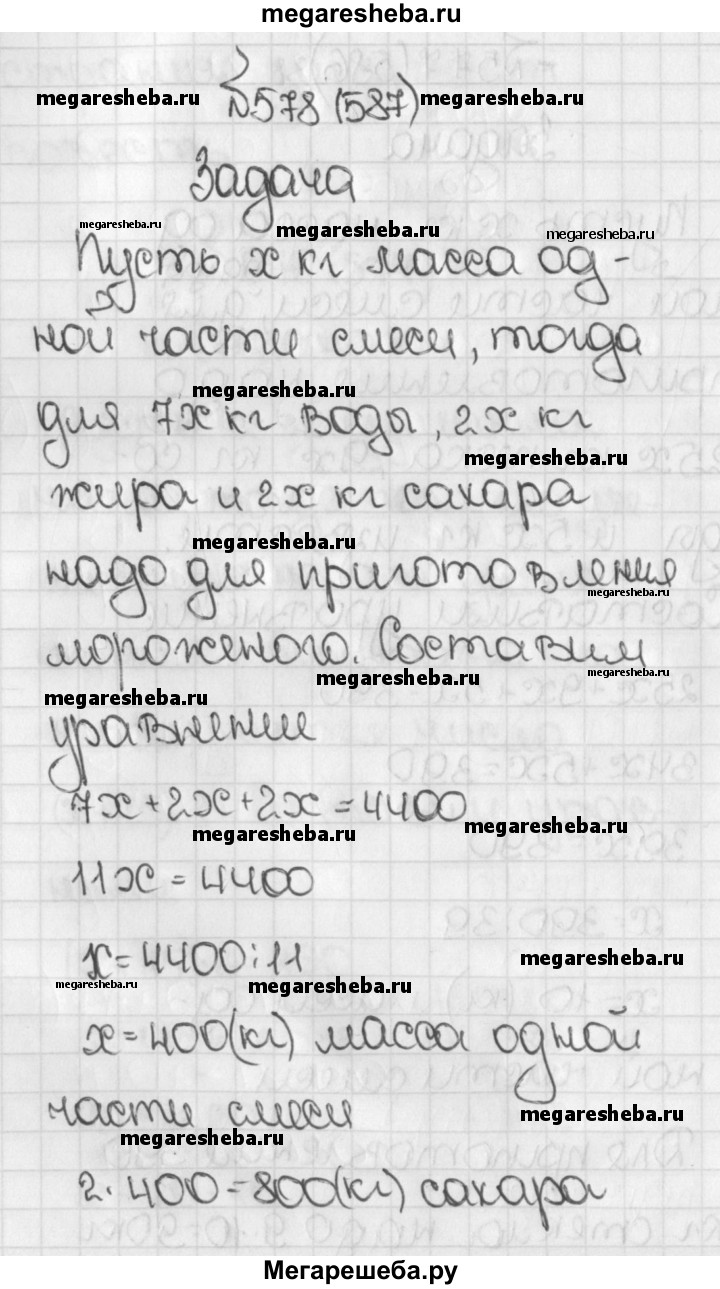 megaresheba.ru
megaresheba.ru №578 (587) megaresheba.ru
Задача
megaresheba.ru megaresheba.ru megaresheba.ru
Пусть x кг масса од-
ной части смеси, тогда
megaresheba.ru
для 7x кг воды, 2x кг
megaresheba.ru
жира и 2x кг сахара
megaresheba.ru
надо для приготовления
megaresheba.ru
мороженого. Составим
megaresheba.ru
megaresheba.ru
уравнение
7x + 2x + 2x = 4400
megaresheba.ru megaresheba.ru
11x = 4400
x = 4400 : 11
megaresheba.ru
megaresheba.ru
x = 400 (кг) масса одной
части смеси
megaresheba.ru
megaresheba.ru
2 · 400 = 800 (кг) сахара
Мегарешеба.ру